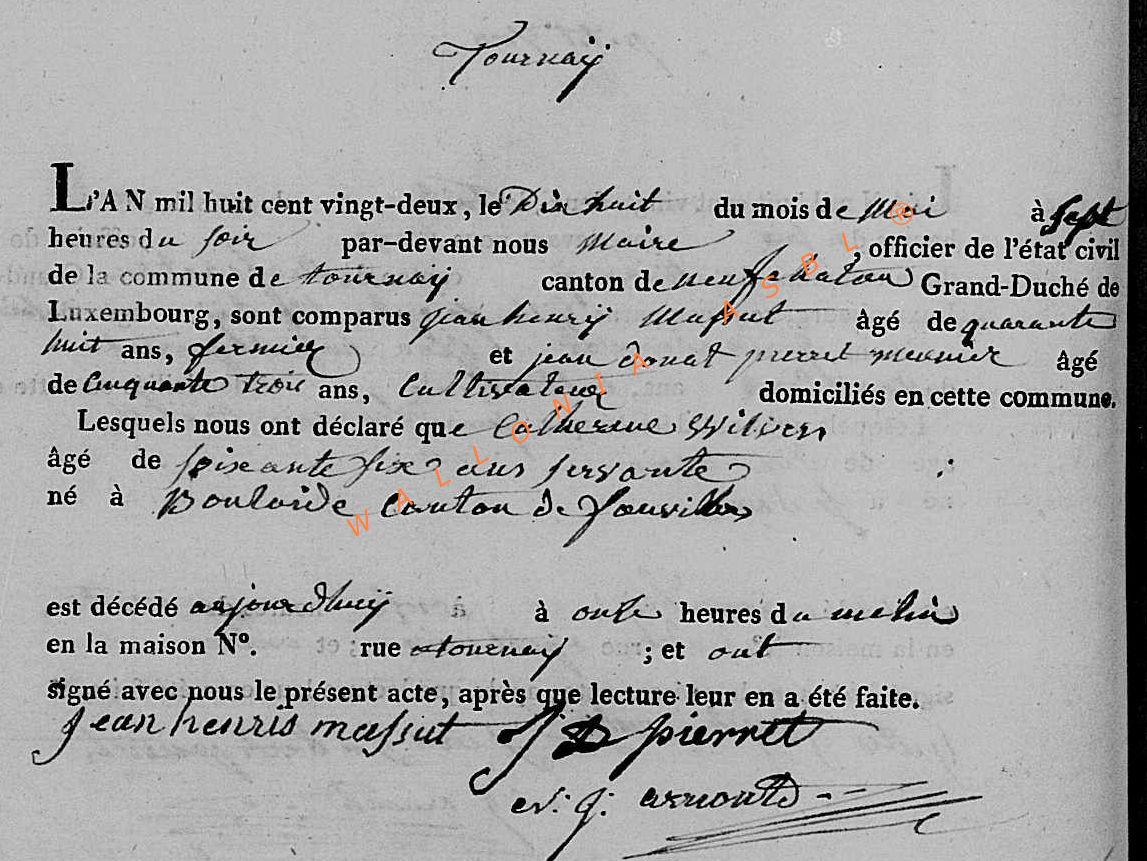 Tournay
L'AN mil huit cent vingt-deux, le Dix huit du mois de Mai à Sept
heures du soir par-devant nous Maire , officier de l'état civil
de la commune de tournay canton de neufchatau Grand-Duché de
Luxembourg, sont comparus jean henry Massut âgé de quarante
huit ans, fermier et jean donat pierret meunier âgé
de Cinquante trois ans, Cultivateur domiciliés en cette commune.
Lesquels nous ont déclaré que Catherine Wilvers
âgé de soixante six ans servante
né à Boulaide Canton de fauvillers
est décédé aujourdhuy à à onze heures du matin
en la maison N°. rue a tournay ; et ont
signé avec nous le présent acte, après que lecture leur en a été faite.
jean henris massut J D pierret
arnould
WALLONIA ASBL ®